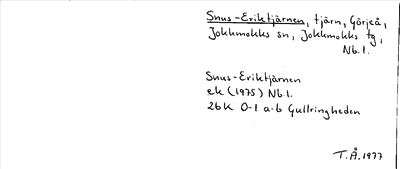 Snus-Eriktjärnen, tjärn, Görjeå,
Jokkmokks sn, Jokkmokks tg,
Nb.l.
Snus-Eriktjärnen
ek (1975) Nb.l.
26K 0-1 a-b Gullringheden
T.Å. 1977